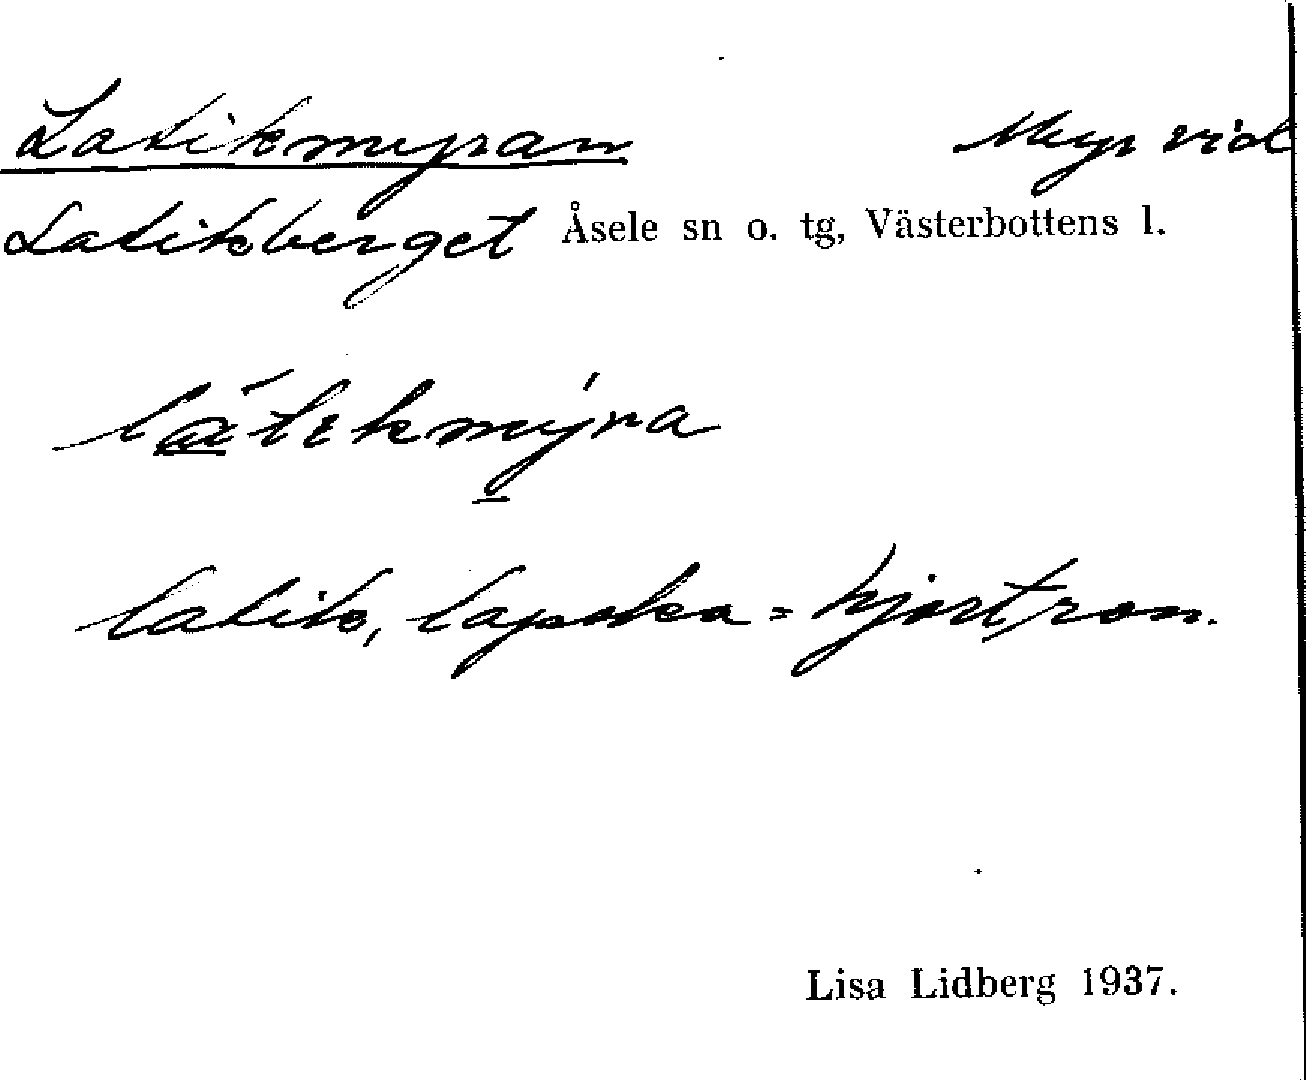 Latikmyran Myr vid
Latikberget Åsele sn o. tg, Västerbottens l.
la̲´tikmy̲´ra
latik, lapska = hjortron.
Lisa Lidberg 1937.